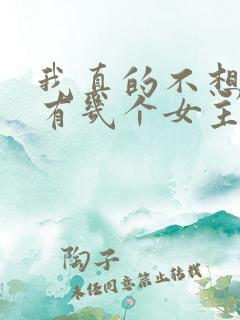 我真的不想
有几个女主
陶子
未任同意禁止转载